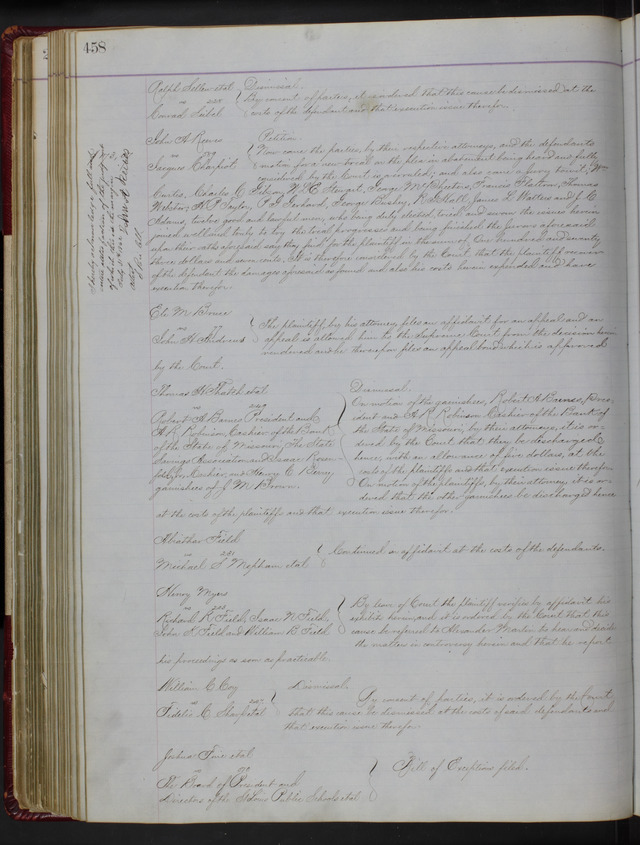 458
Ralph Sellew et al. Dismissal.
vs 228 By consent of parties, it is ordered that this cause be dismissed at the
Conrad costs of the defendant and that execution issue therefor.
John A. Reeves Petition.
vs 179 Now come the parties, by their respective attorneys, and the defendants
Jacques Charpiot motion for a new trial on the plea in abatement being heard and fully
considered by the Court is overruled; and also come a jury to wit, Wm
Curlis, Charles C. Gibson, W. H. C. Stewart, George McPheeters, Francis Flatton, Thomas
Webster, H. P. Taylor, P. G. Gerhard, George Bushey, R. S. Hall, James L. Watters and J. C.
Adams, twelve good and lawful men, who being duly elected, tried and sworn the issues herein
joined well and truly to try the trial progresses and being finished the jurors aforesaid
upon their oaths aforesaid say they find for the plaintiff in the sum of One hundred and seventy
three dollars and seven cents. It is therefore considered by the Court that the plaintiff recover
of the defendant the damages aforesaid as found and also his costs herein expended and have
execution therefor.
Eli M. Bruce
vs The plaintiff, by his attorney files an affidavit for an appeal and an
John H. Andrews appeal is allowed him to the Supreme Court from the decision herein
rendered and he therefor files an appeal bond which is approved
by the Court.
Thomas H. Thatch et al. Dismissal.
vs On motion of the garnishees, Robert A. Barnes, Pres-
Robert A. Barnes President and ident and A. R. Robinson Cashier of the Bank of
A. R. Robinson, Cashier of the Bank the State of Missouri, by their attorneys, it is or-
of the State of Missouri, The State dered by the Court that they be discharged
Savings Association and Isaac Rosen- hence with an allowance of five dollars, at the
feld, Jr., Cashier, and Henry C. Berry, costs of the plaintiffs and that execution issue therefor.
garnishees of J. M. Brown. On motion of the plaintiffs, by their attorney, it is or-
dered that the other garnishees be discharged hence
at the costs of the plaintiffs and that execution issue therefor.
Abiathar Field
vs 291 Continued on affidavit at the costs of the defendants.
Michael S. Mepham et al.
Henry Myers By leave of Court the plaintiff verifies by affidavit his
vs exhibits herein, and it is ordered by the Court that this
Richard R. Field, Isaac N. Field, cause be referred to Alexander Martin to hear and decide
John S. Field and William B. Field the matters in controversy herein and that he report
his proceedings as soon as practicable.
William C. Coy Dismissal.
vs By consent of parties, it is ordered by the Court
Fidelio C. Sharp et al. that this cause be dismissed at the costs of said defendants and
that execution issue therefor.
Joshua et al.
vs Bill of Exceptions filed.
The Board of President and
Directors of the St Louis Public Schools et al.